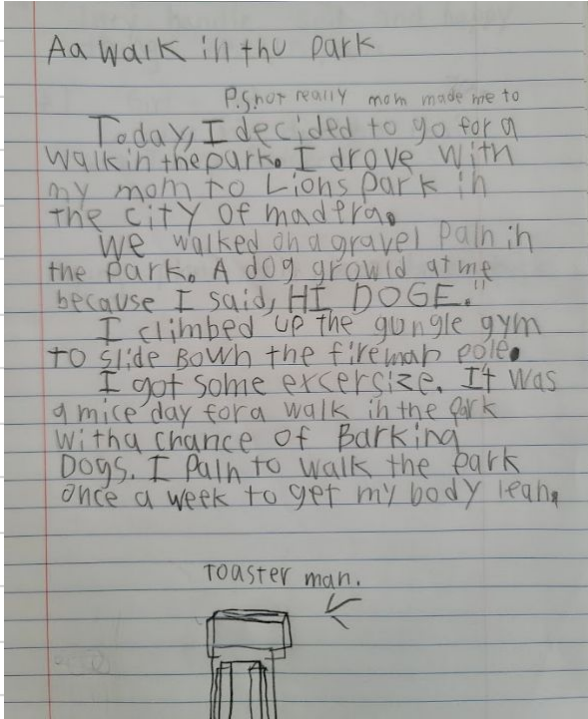 Aa walk in thu park
P.S not really mom made me to
Today, I decided to go for a
walk in the park. I drove with
my mom to Lions park in
the city of madera.
We walked on a gravel pain in
the park. A dog growld at me
because I said, HI DOGE."
I climbed up the gungle gym
to slide Bown the fireman pole.
I got some excersize. It was
a mice day for a walk in the park
with a chance of Barking
Dogs. I Paln to walk the park
once a week to get my body lean,
Toaster man.